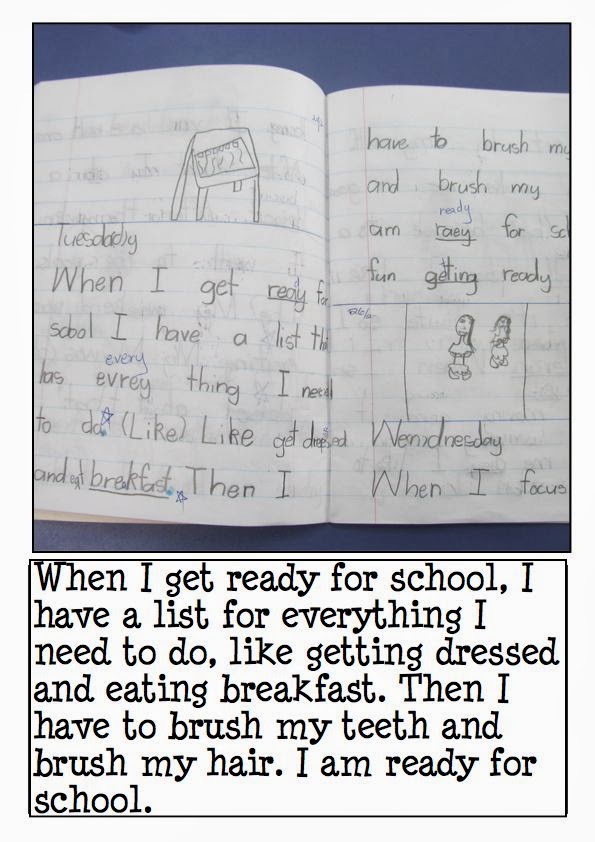 Tuesdady
When I get reay for
scool I have a list th
every
has evrey thing I need
to do. (Like) Like get dressed
and eat breakfast. Then I
have to brush my
and brush my
ready
am raey for sc
fun geting ready
Wenxdnesday
When I focus
When I get ready for school, I
have a list for everything I
need to do, like getting dressed
and eating breakfast. Then I
have to brush my teeth and
brush my hair. I am ready for
school.